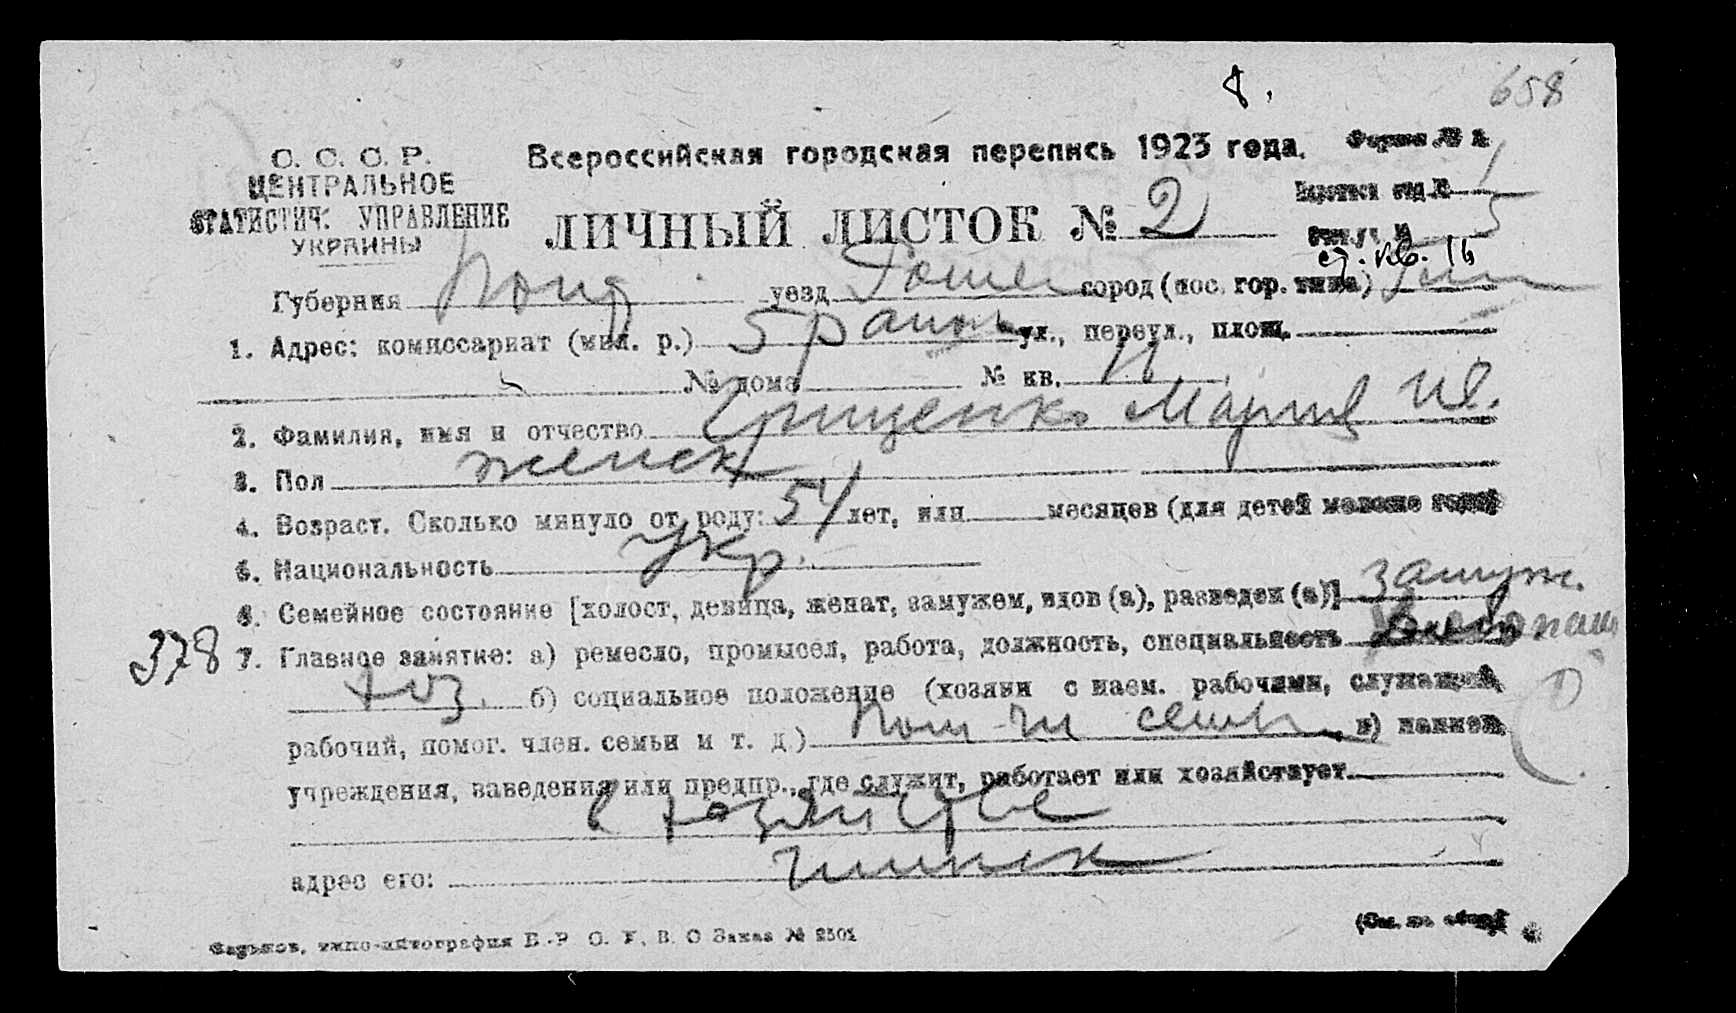 8.
658
С. С. С. Р.
ЦЕНТРАЛЬНОЕ
СТАТИСТИЧ. УПРАВЛЕНИЕ
УКРАИНЫ
Всероссийская городская перепись 1923 года.
Форма № 2.
ЛИЧНЫЙ ЛИСТОК № 2
1
5
Губерния уезд город (пос. гор. типа)
1. Адрес: комиссариат (мил. р.) 5 район ул., переул., площ.
№ дома № кв.
2. Фамилия, имя и отчество Грищенко Мария Ив.
3. Пол женск
4. Возраст. Сколько минуло от роду: 54 лет, или месяцев (для детей моложе года)
5. Национальность укр.
6. Семейное состояние [холост, девица, женат, замужем, вдов (а), разведен (а)] замуж.
378
7. Главное занятие: а) ремесло, промысел, работа, должность, специальность
хоз. б) социальное положение (хозяин с наем. рабочими, служащий,
рабочий, помог. член. семьи и т. д.) пом чл семьи, в) наимен.
учреждения, заведения или предпр., где служит, работает или хозяйствует
в хозяйстве
адрес его:
Харьков, типо-литография В.-Р. О. У. В. О Заказ № 2501
(См. на обор.)